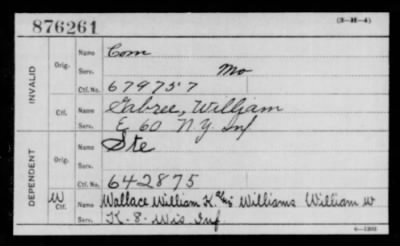 876261
(3-H-A)
INVALID
Orig.
Name Com
Serv. Mo
Ctf. No. 679757
Ctf.
Name Gabree, William
Serv. E 60 N.Y. Inf
DEPENDENT
Orig.
Name Ste
Serv.
Ctf. No. 642875
W Ctf.
Name Wallace William K. Williams William W
Serv. K. 8. Wis Inf.